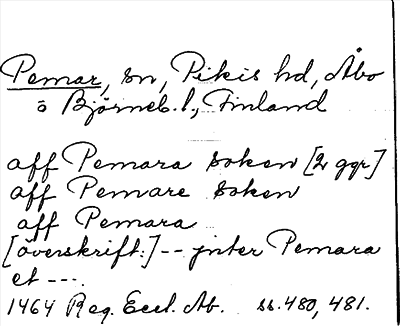 Pemar, sn, Pikis hd, Åbo
o Björneb. l., Finland
aff Pemara soken [2 ggr]
aff Pemare soken
aff Pemara
[överskrift:] -- jnter Pemara
et ---.
1464 Reg. Eccl. Ab. ss. 480, 481.